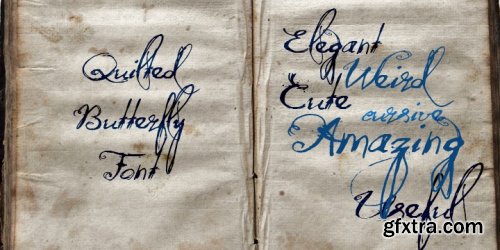 Quilted
Butterfly
Font
Elegant
Weird
Cute
cursive
Amazing
Useful
gfxtra.com